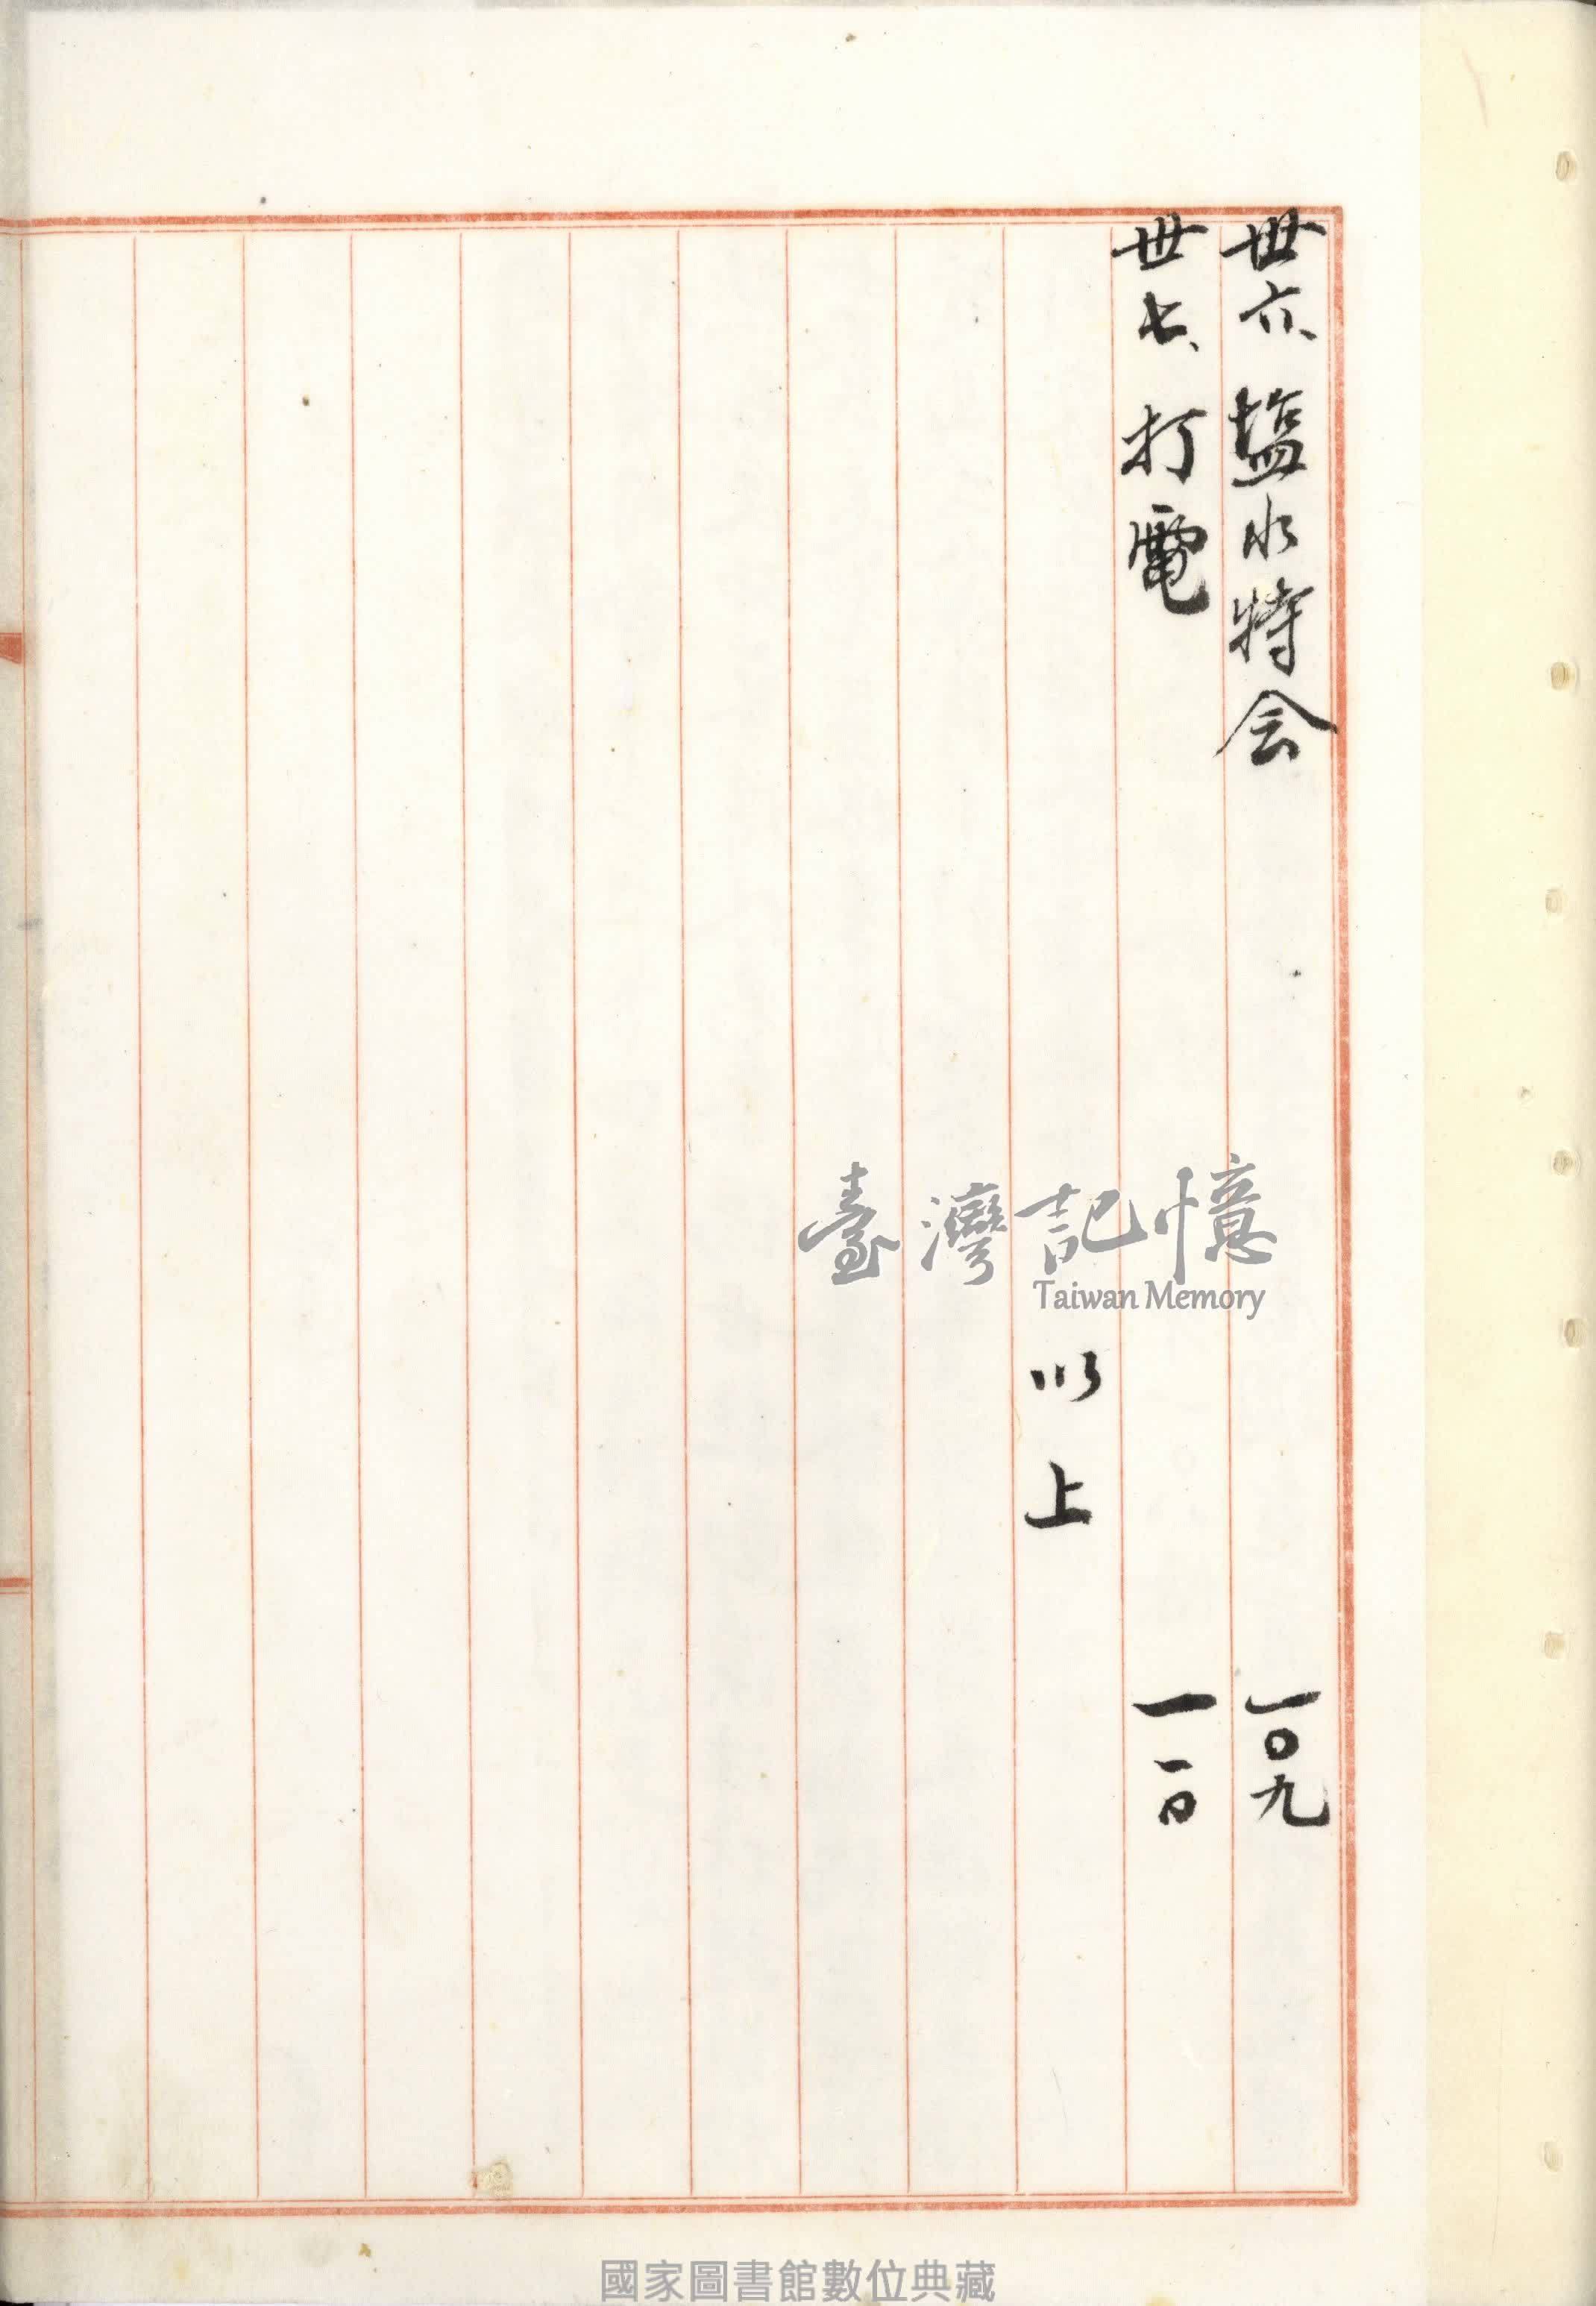 丗六、塩水特会 一〇九
丗七、打電 一一〇
以上
臺灣記憶
Taiwan Memory
國家圖書館數位典藏